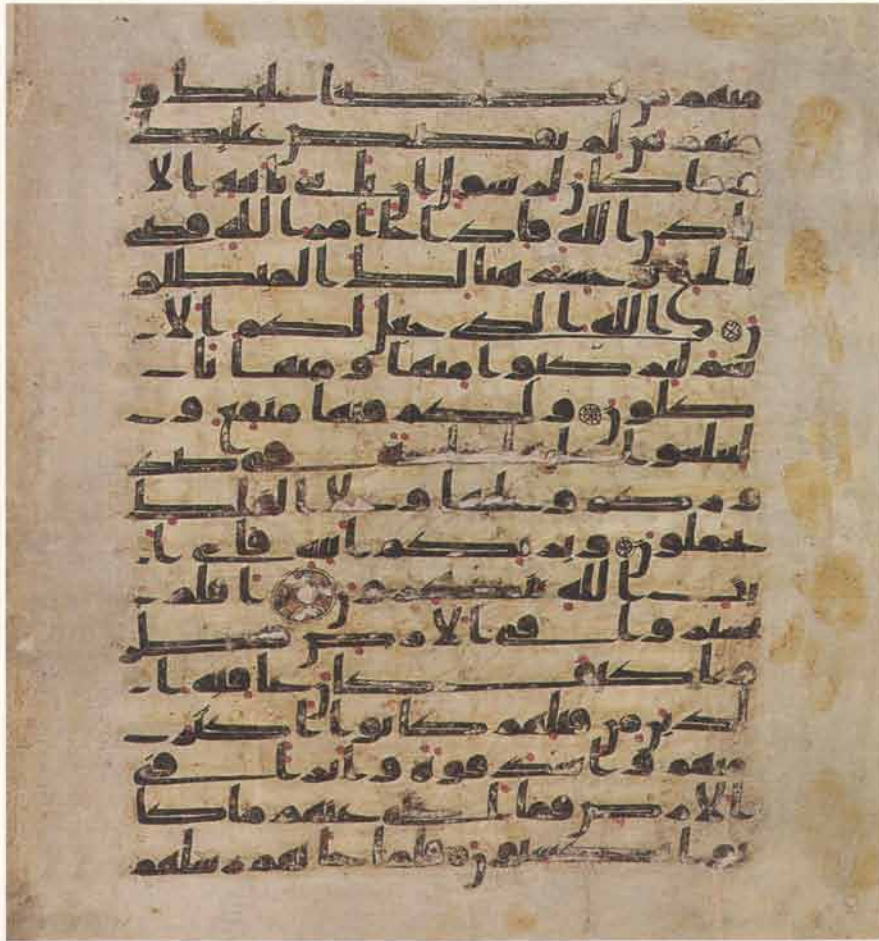 منهم من قصصنا عليك و
منهم من لم نقصص عليك
وما كان لرسول ان ياتى بايه الا
باذن الله فاذا جا امر الله قضى
بالحق وخسر هنالك المبطلو
ن الله الذى جعل لكم الا
نعم لتركبوا منها ومنها تا
كلون ولكم فيها منفع و
لتبلغوا عليها حاجة فى صد
وركم وعليها وعلى الفلك
تحملون ويريكم ايته فاى ا
يت الله تنكرون افلم
يسيروا فى الارض فينظر
وا كيف كان عقبه ا
لذين من قبلهم كانوا اكثر
منهم واشد قوة واثارا فى
الارض فما اغنى عنهم ما كا
نوا يكسبون فلما جاتهم رسلهم